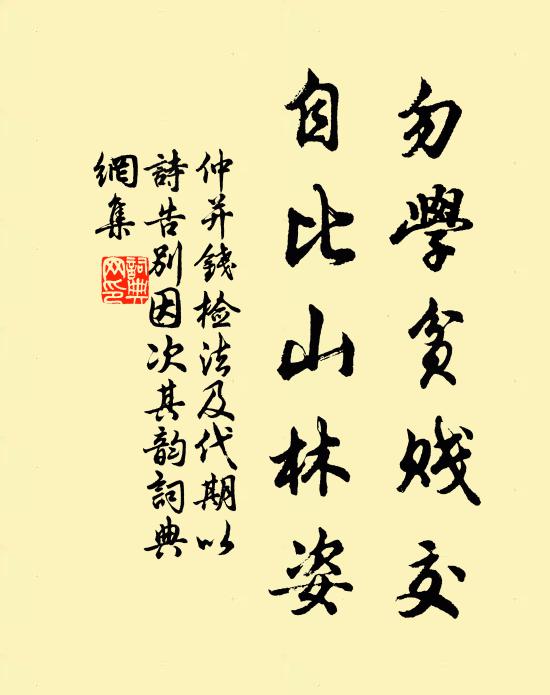 勿學貧賤交
自比山林姿
仲并錢檢法及代期以
詩告別因次其韵詞典
網集
詞典
网印